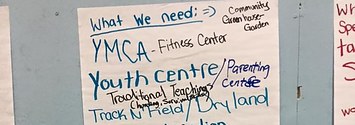 What We need: => Community
Greenhouse-
Garden
YMCA- Fitness Center
Youth centre/ Parenting
Centre
Traditional Teachings
Track N' Field / Dry land
Wh
Spe